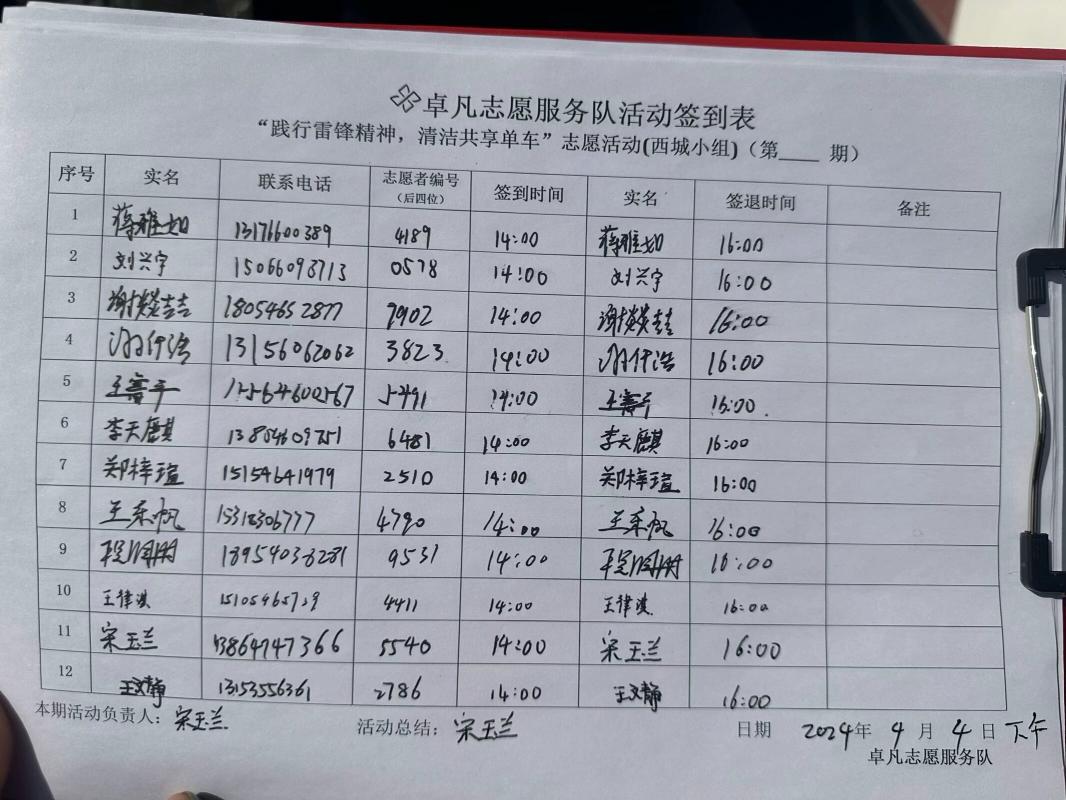 卓凡志愿服务队活动签到表
“践行雷锋精神，清洁共享单车”志愿活动(西城小组)（第____ 期）
序号 实名 联系电话 志愿者编号（后四位） 签到时间 实名 签退时间 备注
1 蒋雅如 13176600389 4189 14:00 蒋雅如 16:00
2 刘兴宇 15066098713 0578 14:00 刘兴宇 16:00
3 谢燚喆 18054652877 7902 14:00 谢燚喆 16:00
4 13156062062 3823 14:00 16:00
5 王骞平 15564600567 5491 14:00 16:00
6 李天麒 6481 14:00 李天麒 16:00
7 郑梓瑄 15154641979 2510 14:00 郑梓瑄 16:00
8 王乐帆 4790 14:00 王乐帆 16:00
9 18954038281 9531 14:00 16:00
10 王律淇 4411 14:00 王律淇 16:00
11 宋玉兰 13864747366 5540 14:00 宋玉兰 16:00
12 王文静 13153556361 2786 14:00 王文静 16:00
本期活动负责人：宋玉兰 活动总结：宋玉兰 日期 2024年 4 月 4 日 下午
卓凡志愿服务队